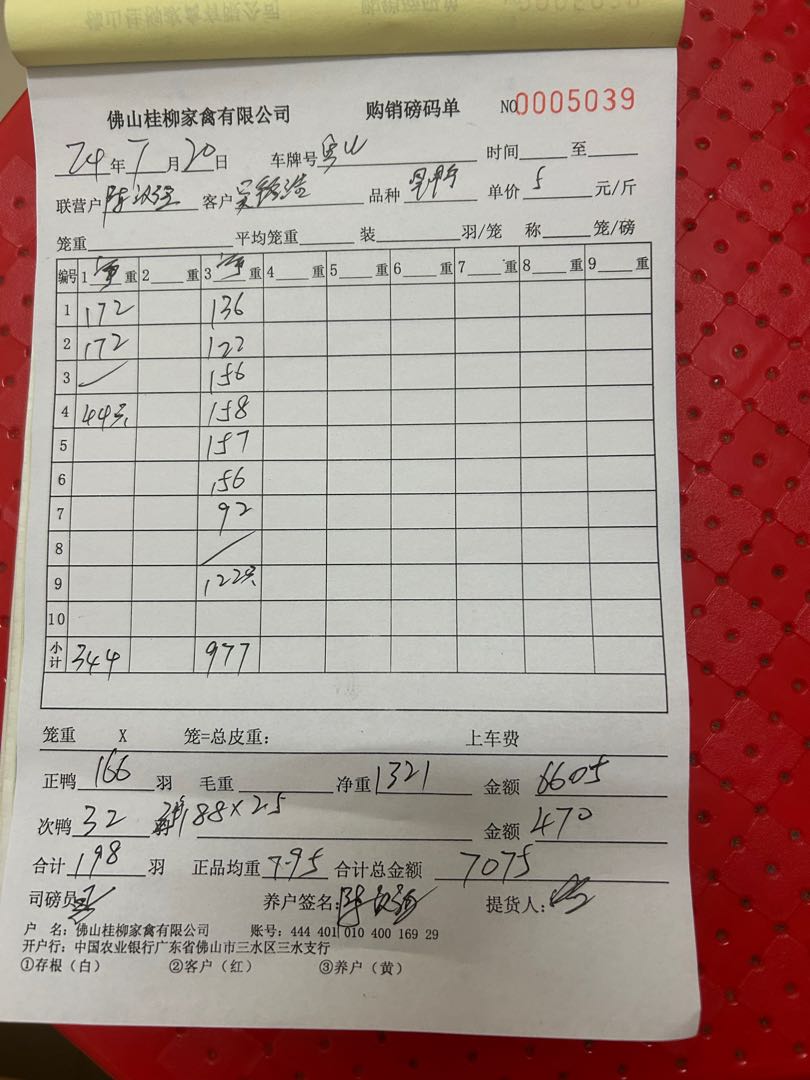 佛山桂柳家禽有限公司 购销磅码单 NO0005039
24年7月20日 车牌号 时间 至
联营户 陈 客户 吴 品种 单价 5 元/斤
笼重 平均笼重 装 羽/笼 称 笼/磅
编号 1 重 2 重 3 重 4 重 5 重 6 重 7 重 8 重 9 重
1 172 136
2 172 122
3 156
4 44只 158
5 157
6 156
7 92
8
9 122只
10
小计 344 977
笼重 X 笼=总皮重: 上车费
正鸭 166 羽 毛重 净重 1321 金额 6605
次鸭 32 188×25 金额 470
合计 198 羽 正品均重 7.95 合计总金额 7075
司磅员 养户签名: 陈 提货人:
户 名: 佛山桂柳家禽有限公司 账号: 444 401 010 400 169 29
开户行: 中国农业银行广东省佛山市三水区三水支行
①存根(白) ②客户(红) ③养户(黄)